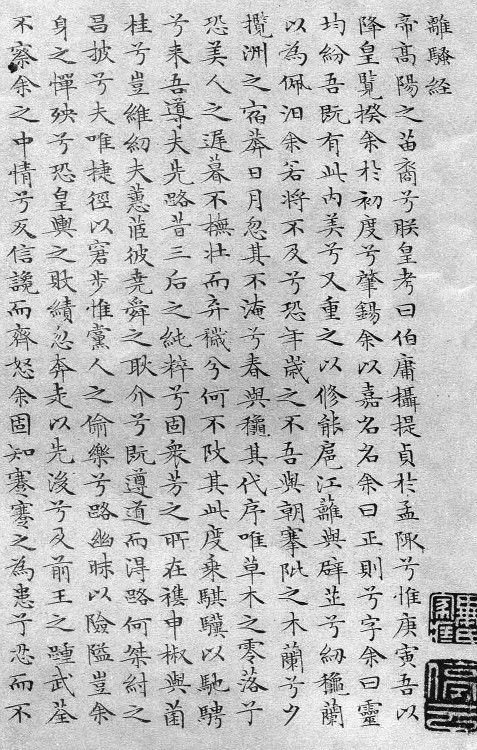 離騷経
帝高陽之苗裔兮朕皇考曰伯庸攝提貞於孟陬兮惟庚寅吾以
降皇覽揆余於初度兮肇錫余以嘉名名余曰正則兮字余曰靈
均紛吾既有此内美兮又重之以修能扈江蘺與辟芷兮紉龝蘭
以為佩汩余若將不及兮恐年歲之不吾與朝搴阰之木蘭兮夕
攬洲之宿莽日月忽其不淹兮春與龝其代序唯草木之零落兮
恐美人之遲暮不撫壯而弃穢兮何不改其此度乘騏驥以馳騁
兮来吾導夫先路昔三后之純粹兮固衆芳之所在襍申椒與菌
桂兮豈維紉夫蕙茝彼堯舜之耿介兮既遵道而得路何桀紂之
昌披兮夫唯捷徑以窘步惟黨人之偷樂兮路幽昧以險隘豈余
身之憚殃兮恐皇輿之敗績忽奔走以先後兮及前王之踵武荃
不察余之中情兮反信讒而齊怒余固知謇謇之為患兮忍而不